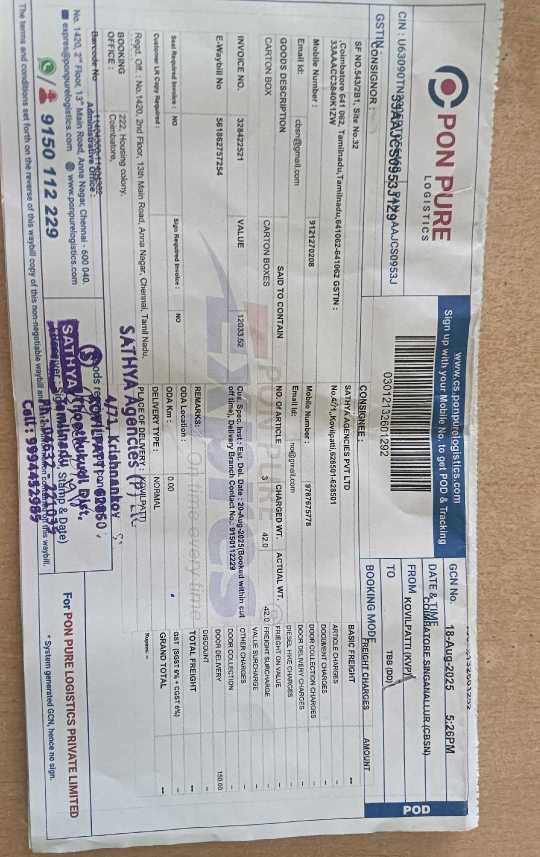 PON PURE
LOGISTICS
www.cs.ponpurelogistics.com
Sign up with your Mobile No. to get POD & Tracking
CIN : U63090TN
AAJCS0953J
GSTIN : 33AAJCS0953J1Z9
03012132601292
GCN No.
DATE & TIME 18-Aug-2025 5:26PM
FROM COIMBATORE SINGANALLUR (CBSN)
TO KOVILPATTI (KVP)
BOOKING MODE TBB (DD)
POD
CONSIGNOR :
SF NO.543/2B1, Site No.32
,Coimbatore 641 062, Tamilnadu,Tamilnadu,641062-641062 GSTIN :
33AACC3840K1ZW
Mobile Number : 9121270208
Email Id: cbsn@gmail.com
CONSIGNEE :
SATHYA AGENCIES PVT LTD
No.4/71,Kovilpatti,628501-628501
Mobile Number : 9787675778
Email Id: no@gmail.com
GOODS DESCRIPTION SAID TO CONTAIN NO. OF ARTICLE CHARGED WT. ACTUAL WT.
CARTON BOX CARTON BOXES 3 42.0 42.0
INVOICE NO. 328422521 VALUE 12033.52
E-Waybill No 561862757254
Cus. Spec. Inst : Est. Date : 20-Aug-2025(Booked within cut off time), Delivery Branch Contact No.: 9150112229
REMARKS:
ODA Location :
ODA Km : 0.00
DELIVERY TYPE : NORMAL
PLACE OF DELIVERY : KOVILPATTI
Seal Required Invoice : NO Sign Required Invoice : NO
Customer LR Copy Required :
Regd. Off. : No.1420, 2nd Floor, 13th Main Road, Anna Nagar, Chennai, Tamil Nadu,
BOOKING OFFICE : 222, Housing colony, Coimbatore,
FREIGHT CHARGES AMOUNT
BASIC FREIGHT --
ARTICLE CHARGES -
DOCUMENT CHARGES -
DOOR COLLECTION CHARGES -
DOOR DELIVERY CHARGES -
DIESEL HIKE CHARGES -
FREIGHT ON VALUE -
FREIGHT SURCHARGE -
VALUE SURCHARGE -
OTHER CHARGES -
DOOR COLLECTION -
DOOR DELIVERY 150.00
DISCOUNT -
TOTAL FREIGHT --
GST (SGST 9% + CGST 9%) -
GRAND TOTAL --
Rupees: --
Barcode No
Administrative Office :
No. 1420, 2nd Floor, 13th Main Road, Anna Nagar, Chennai - 600 040.
expres@ponpurelogistics.com www.ponpurelogistics.com
9150 112 229
SATHYA Agencies (P) Ltd.
4/71, Krishnankov
Thoothukudi Dist.
SATHYA
Tamilnadu
Call: 9994452985
Stamp & Date)
For PON PURE LOGISTICS PRIVATE LIMITED
* System generated GCN, hence no sign.
The terms and conditions set forth on the reverse of this waybill copy of this non-negotiable waybill